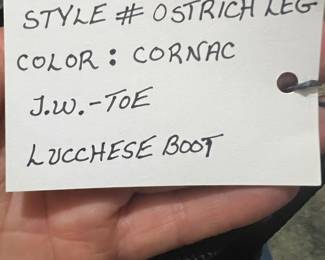 STYLE # OSTRICH LEG
COLOR: CORNAC
J.W.-TOE
LUCCHESE BOOT